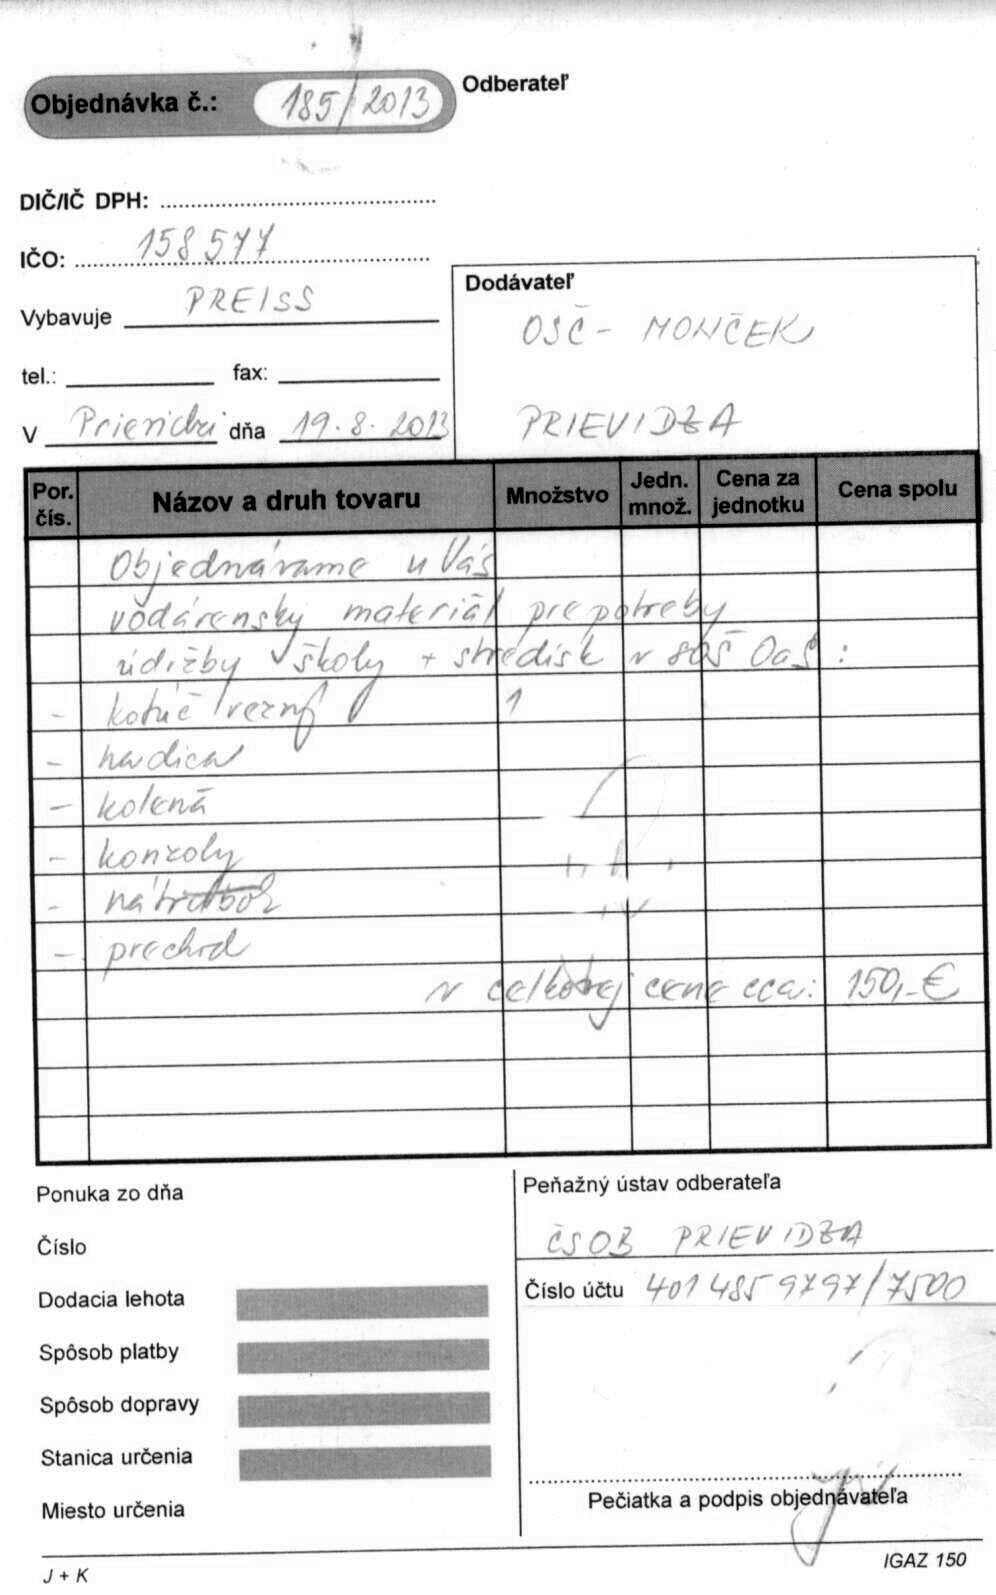 Objednávka č.: 185/2013
Odberateľ
DIČ/IČ DPH:
IČO: 158577
Vybavuje PREISS
tel.: fax:
V Prievidzi dňa 19.8.2013
Dodávateľ
OSČ - MONČEK
PRIEVIDZA
Por. čís. Názov a druh tovaru Množstvo Jedn. množ. Cena za jednotku Cena spolu
Objednávame u Vás
vodárenský materiál pre potreby
údržby školy + stredísk v SOŠ OaS :
- kotúč rezný 1
- hadica
- kolená
- konzoly
-
- prechod
v celkovej cene cca: 150,-€
Ponuka zo dňa
Číslo
Dodacia lehota
Spôsob platby
Spôsob dopravy
Stanica určenia
Miesto určenia
Peňažný ústav odberateľa
ČSOB PRIEVIDZA
Číslo účtu 401 485 9797/7500
Pečiatka a podpis objednávateľa
J + K
IGAZ 150